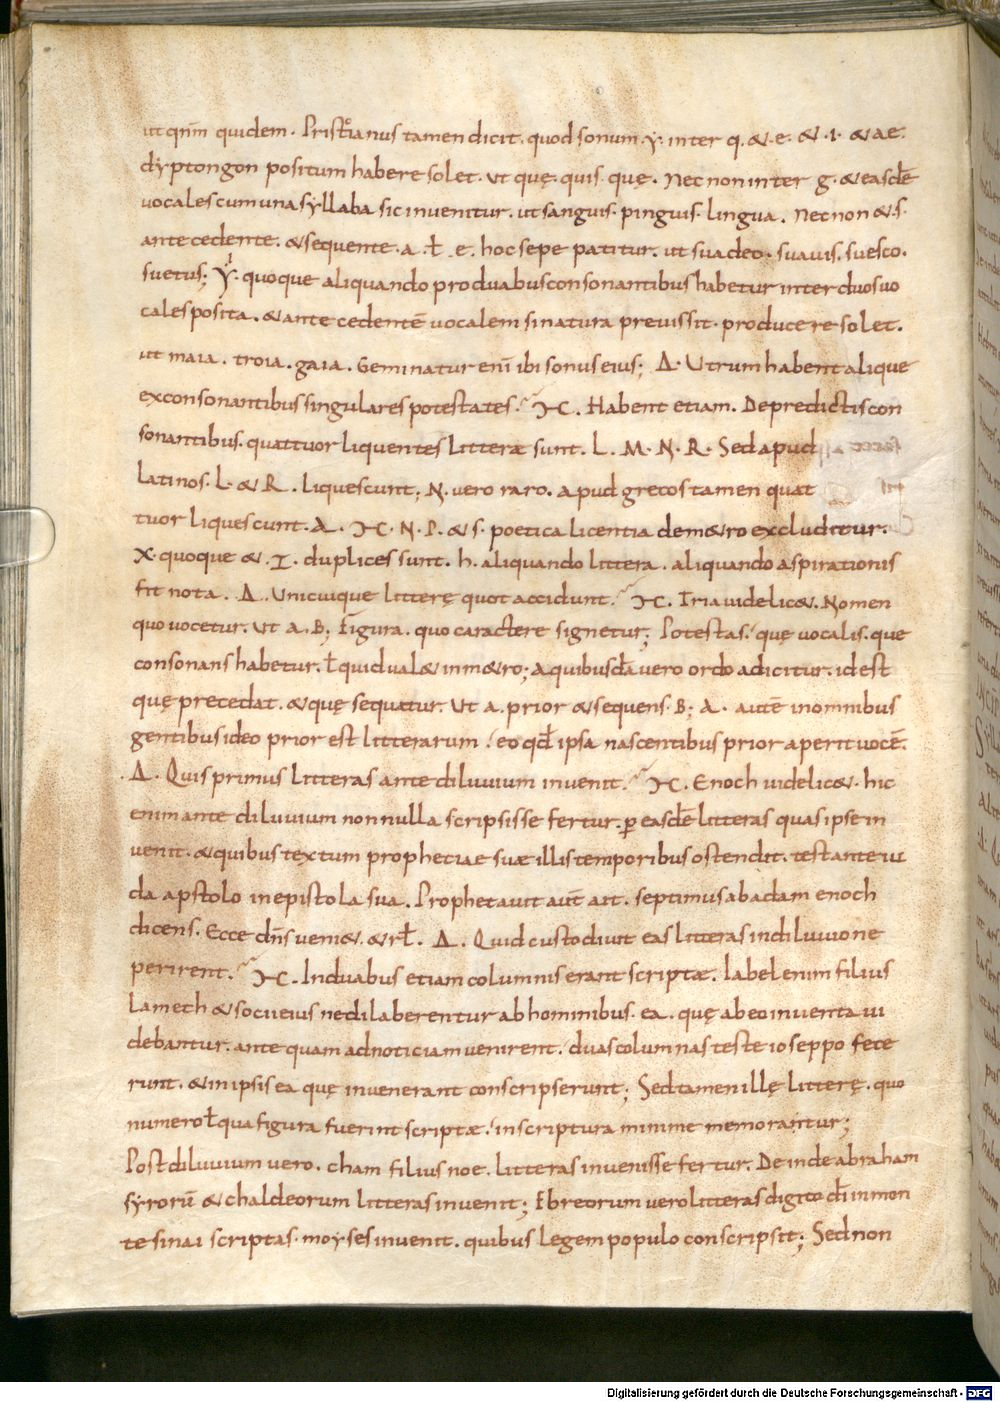 ut qnīm quidem. Pristianus tamen dicit. quod sonum. y. inter q. & .e. & .i. & ae.
dyptongon positum habere solet. ut quę. quis. quę. Nec non inter g. & easdē
uocales cum una syllaba sic inuenitur. ut sanguis. pinguis. lingua. Nec non & .s.
antecedente. & sequente .a. ł .e. hoc sepe patitur. ut suadeo. suauis. suesco.
suetus; Y. quoque aliquando pro duabus consonantibus habetur inter duos uo
cales posita. & antecedentē uocalem si natura breuis sit. producere solet.
ut maia. troia. gaia. Geminatur enī ibi sonus eius; Δ. Utrum habent alique
ex consonantibus singulares potestates. M. Habent etiam. De predictis con
sonantibus. quattuor liquentes litteræ sunt. L. M. N. R. Sed apud
latinos. L. & R. liquescunt; N. uero raro. apud grecos tamen quat
tuor liquescunt. Λ. M. N. P. & s. poetica licentia de m&ro excluditur.
X. quoque & .I. duplices sunt. h. aliquando littera. aliquando aspirationis
fit nota. Δ. Unicuique litterę quot accidunt. M. Tria uidelic&. Nomen
quo uocetur. Ut a. B; Figura. quo caractere signetur; Potestas. quę uocalis. que
consonans habetur. ł quid ual& in m&ro; a quibusdā uero ordo adicitur. id est
quę precedat. & quę sequatur. Ut a. prior & sequens. B; A. autē in omnibus
gentibus ideo prior est litterarum. eo qd̄ ipsa nascentibus prior aperit uocē.
Δ. Quis primus litteras ante diluuium inuenit. M. Enoch uidelic&. hic
enim ante diluuium non nulla scripsisse fertur. ꝑ easdē litteras quas ipse in
uenit. & quibus textum prophetiae suæ illis temporibus ostendit. testante iu
da apostolo in epistola sua. Prophetauit aut̄ ait. septimus ab adam enoch
dicens. Ecce dn̄s ueni&. & rł. Δ. Quid custodiuit eas litteras in diluuio ne
perirent. M. In duabus etiam columnis erant scriptæ. Iabel enim filius
lamech & socii eius ne dilaberentur ab hominibus. ea. quę ab eo inuenta ui
debantur. ante quam ad noticiam uenirent. duas columnas teste ioseppo fece
runt. & in ipsis ea quę inuenerant conscripserunt; Sed tamen illę litterę. quo
numero ł qua figura fuerint scriptæ. in scriptura minime memorantur;
Post diluuium uero. cham filius noe. litteras inuenisse fertur. Deinde abraham
syrorū & chaldeorum litteras inuenit; Ebreorum uero litteras digito dī in mon
te sinai scriptas. moyses inuenit. quibus legem populo conscripsit; Sed non
Digitalisierung gefördert durch die Deutsche Forschungsgemeinschaft - DFG